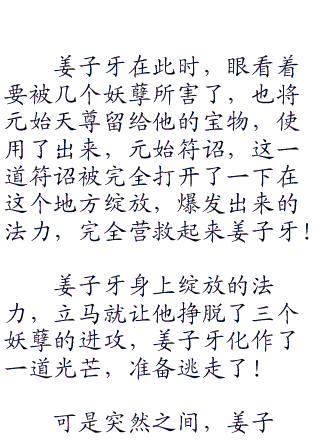 姜子牙在此时，眼看着
要被几个妖孽所害了，也将
元始天尊留给他的宝物，使
用了出来，元始符诏，这一
道符诏被完全打开了一下在
这个地方绽放，爆发出来的
法力，完全营救起来姜子牙！
姜子牙身上绽放的法
力，立马就让他挣脱了三个
妖孽的进攻，姜子牙化作了
一道光芒，准备逃走了！
可是突然之间，姜子